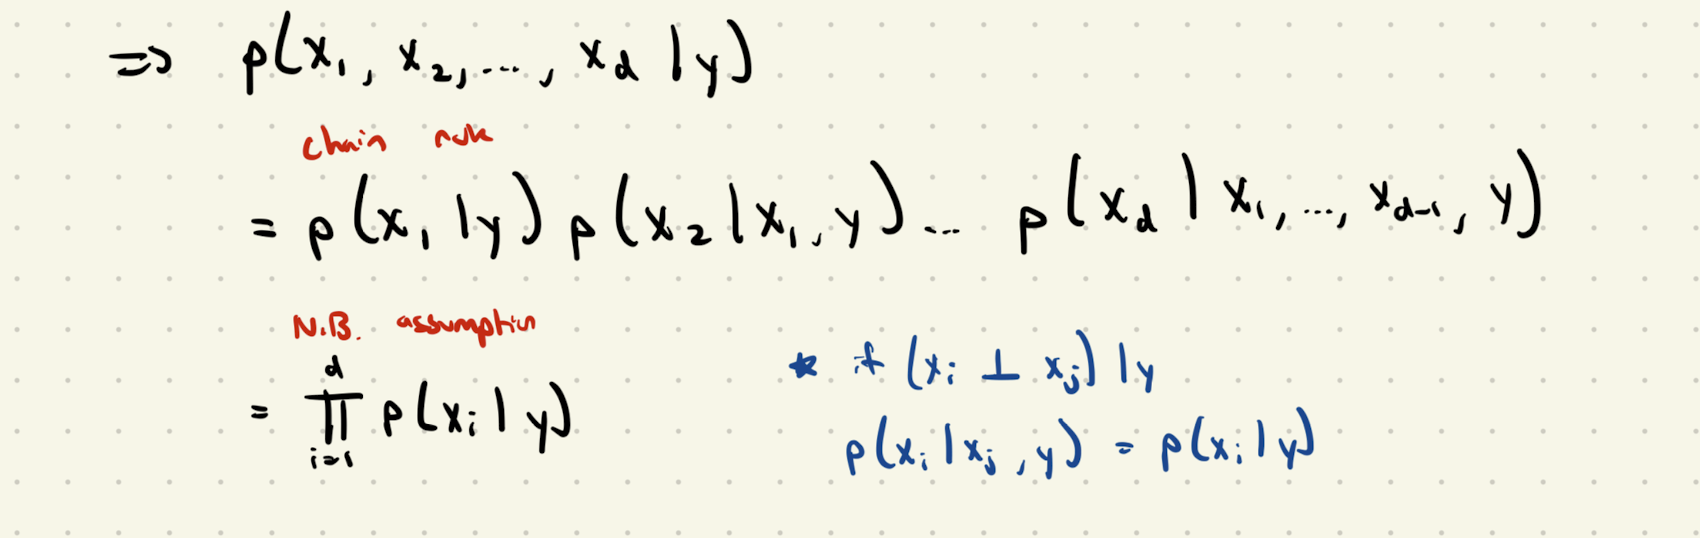 => p(x₁, x₂, ..., x_d | y)
chain rule
= p(x₁ | y) p(x₂ | x₁, y) ... p(x_d | x₁, ..., x_{d-1}, y)
N.B. assumption
= ∏_{i=1}^{d} p(x_i | y)
* if (x_i ⊥ x_j) | y
p(x_i | x_j, y) = p(x_i | y)